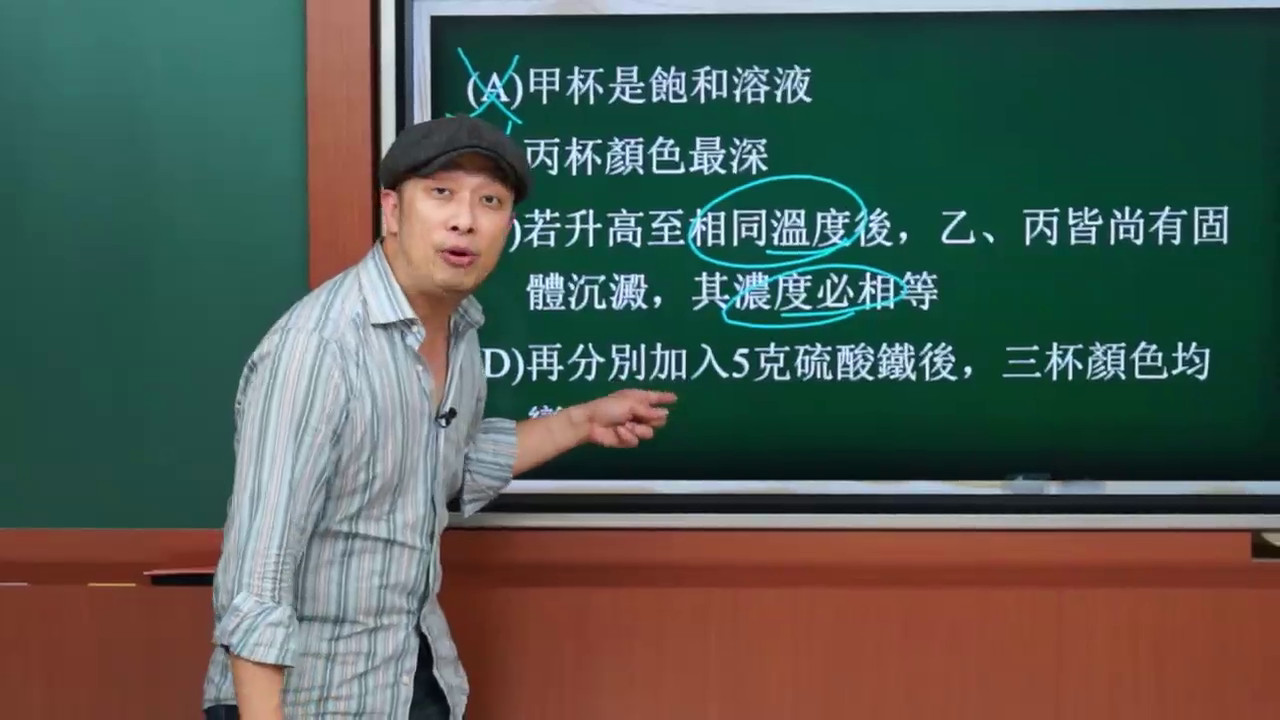 (A)甲杯是飽和溶液
丙杯顏色最深
)若升高至相同溫度後，乙、丙皆尚有固
體沉澱，其濃度必相等
D)再分別加入5克硫酸鐵後，三杯顏色均